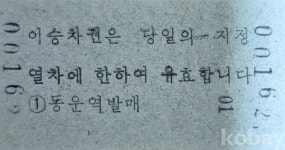 이승차권은 당일의 지정
열차에 한하여 유효합니다
①동운역발매
00162
00162
01
kobay